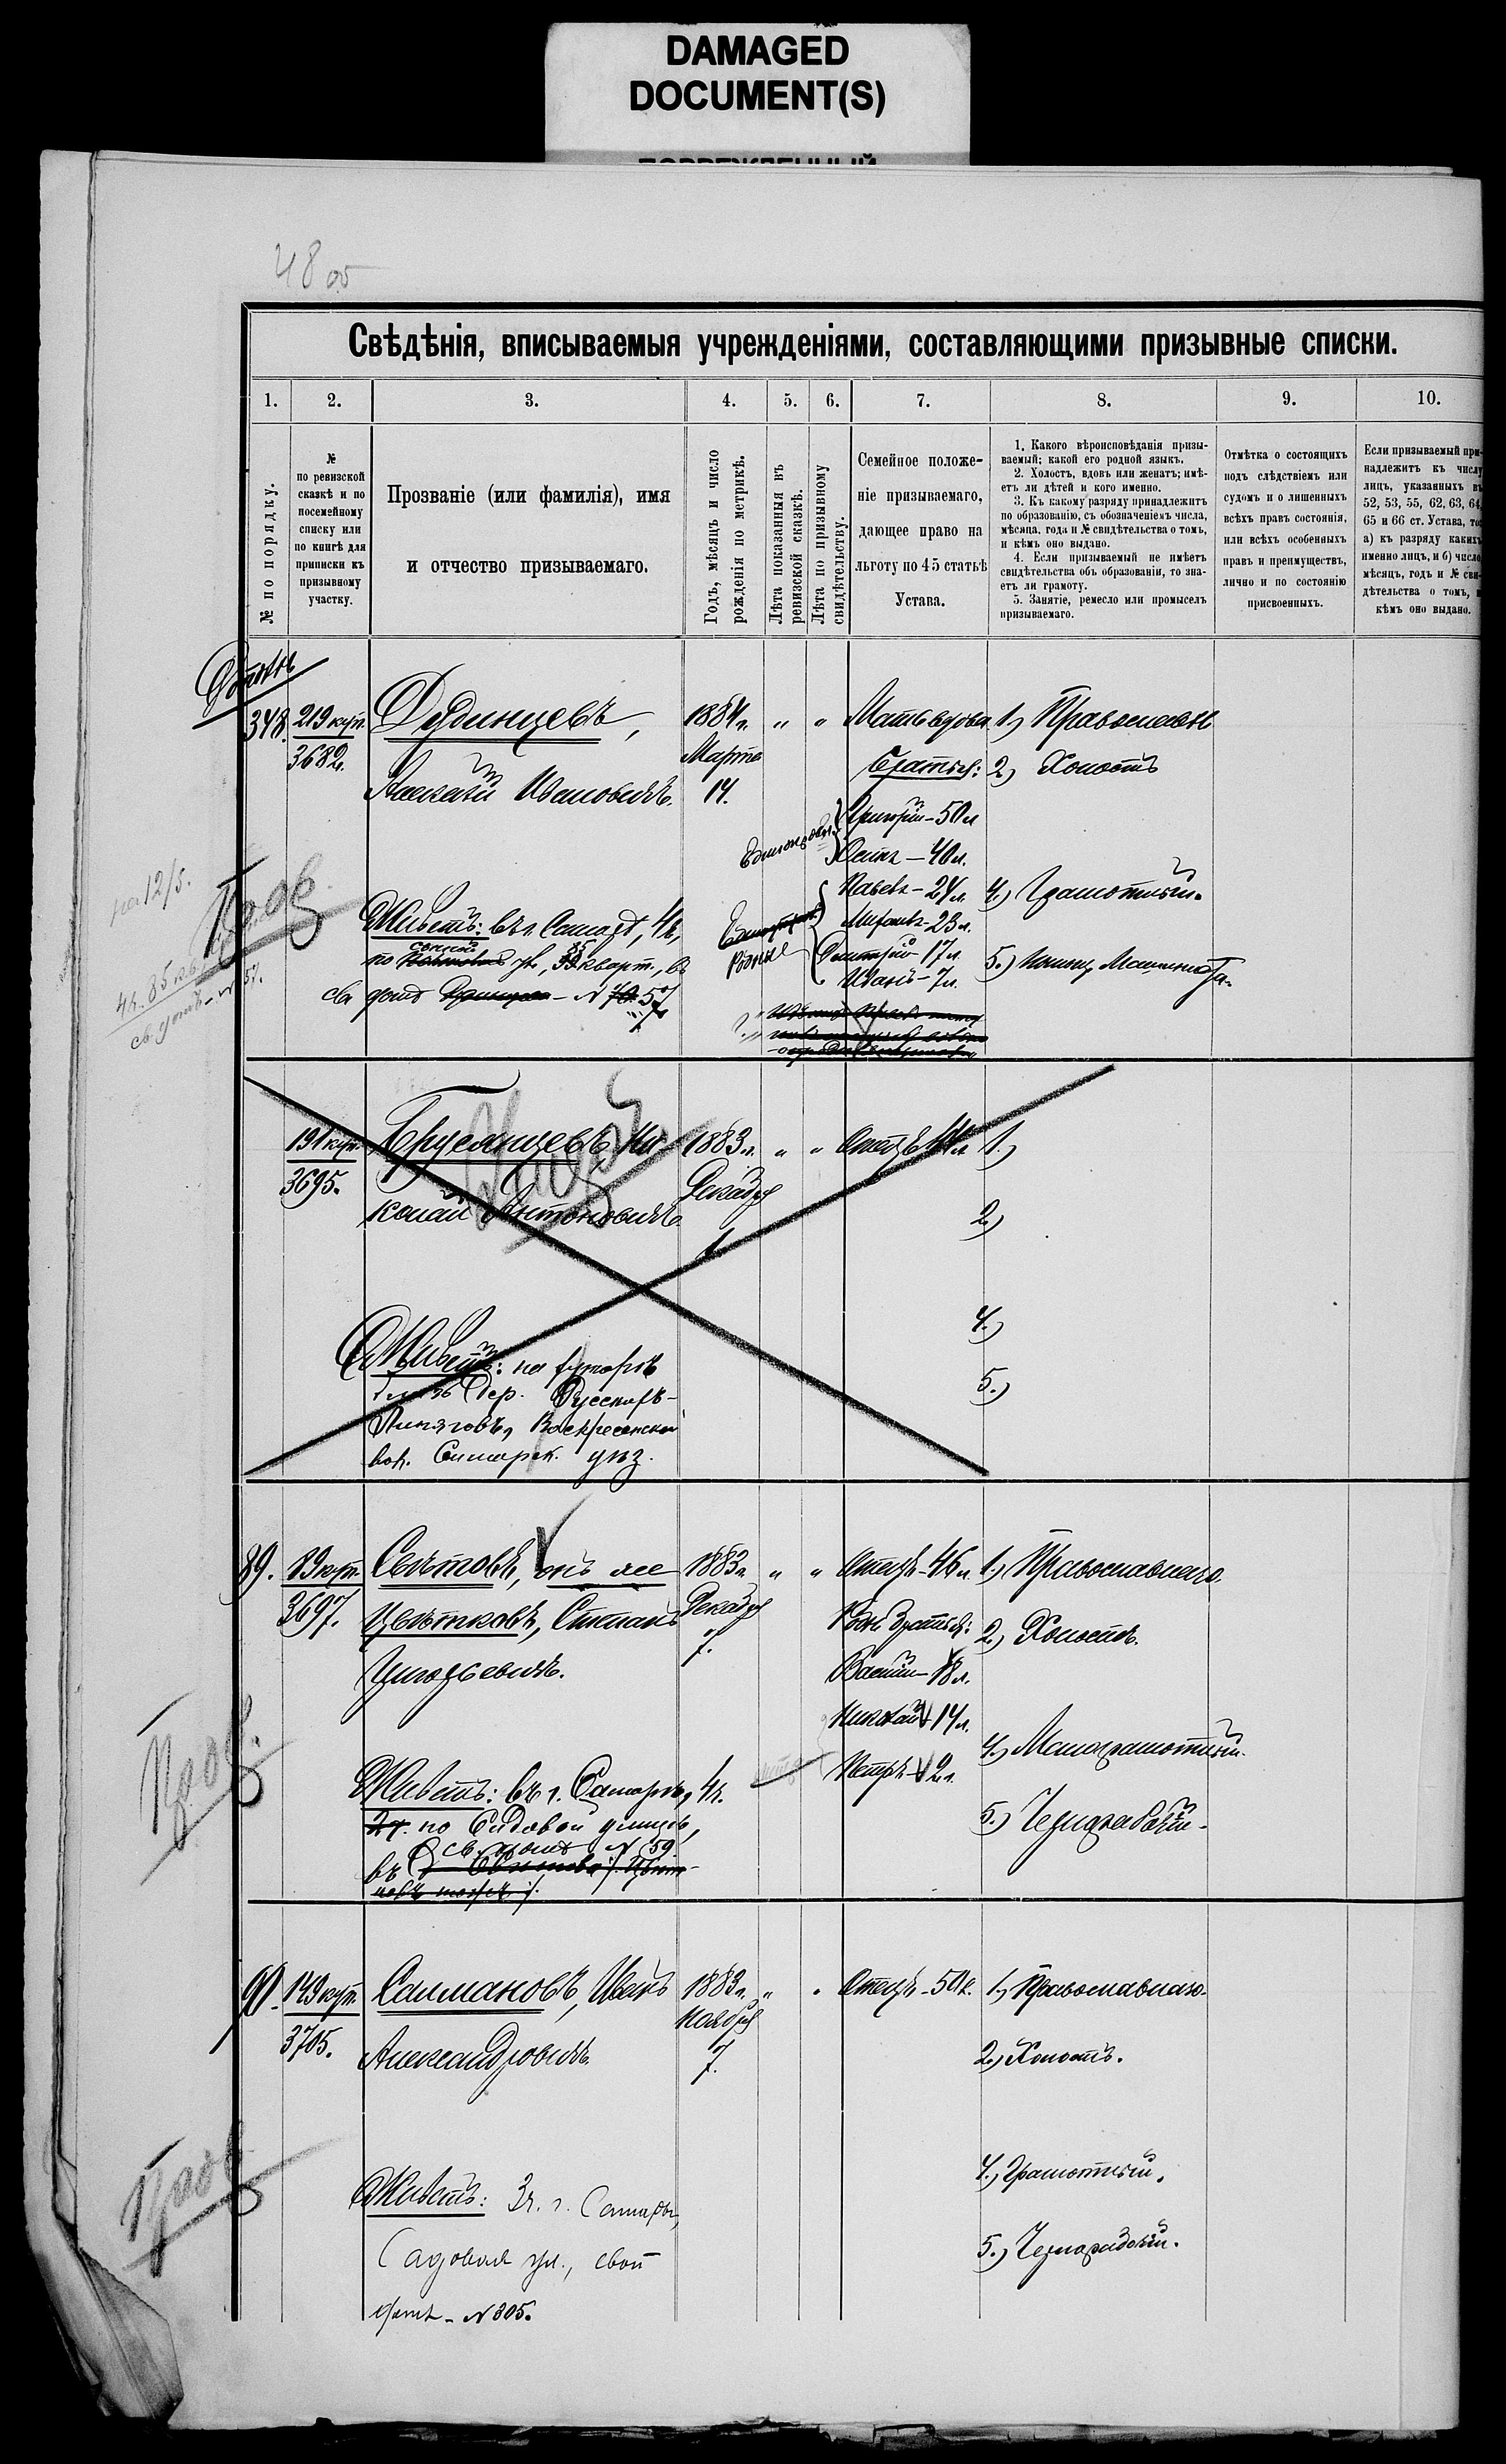 DAMAGED
DOCUMENT(S)
48 об
Свѣдѣнія, вписываемыя учрежденіями, составляющими призывные списки.
1. 2. 3. 4. 5. 6. 7. 8. 9. 10.
№ по порядку.
№
по ревизской
сказкѣ и по
посемейному
списку или
по книгѣ для
приписки къ
призывному
участку.
Прозваніе (или фамилія), имя
и отчество призываемаго.
Годъ, мѣсяцъ и число
рожденія по метрикѣ.
Лѣта показанныя въ
ревизской сказкѣ.
Лѣта по призывному
свидѣтельству.
Семейное положе-
ніе призываемаго,
дающее право на
льготу по 45 статьѣ
Устава.
1. Какого вѣроисповѣданія призы-
ваемый; какой его родной языкъ.
2. Холостъ, вдовъ или женатъ; имѣ-
етъ ли дѣтей и кого именно.
3. Къ какому разряду принадлежитъ
по образованію, съ обозначеніемъ числа,
мѣсяца, года и № свидѣтельства о томъ,
и кѣмъ оно выдано.
4. Если призываемый не имѣетъ
свидѣтельства объ образованіи, то зна-
етъ ли грамоту.
5. Занятіе, ремесло или промыселъ
призываемаго.
Отмѣтка о состоящихъ
подъ слѣдствіемъ или
судомъ и о лишенныхъ
всѣхъ правъ состоянія,
или всѣхъ особенныхъ
правъ и преимуществъ,
лично и по состоянію
присвоенныхъ.
Если призываемый при-
надлежитъ къ числу
лицъ, указанныхъ въ
52, 53, 55, 62, 63, 64,
65 и 66 ст. Устава, то:
а) къ разряду какихъ
именно лицъ, и б) число
мѣсяцъ, годъ и № сви-
дѣтельства о томъ, и
кѣмъ оно выдано.
348. 219 куп.
3682.
Дединцевъ,
Алексѣй Ивановичъ.
1884 г.
Марта
14.
" "
Мать вдова
братья:
Григорій - 50 л
Осипъ - 40 л.
Павелъ - 24 л
23 л.
Дмитрій 17 л
Иванъ - 7 л.
родные
1.) Православн
2.) Холостъ
4.) Грамотный.
5.)
Живетъ: въ г. Самарѣ, 4 ч,
ул., 85 кварт., въ
св домѣ № 57
на 12/5.
4 ч. 85 кв.
св. домъ - № 57.
191 куп.
3695.
Брусянцевъ, Ни-
колай Антоновичъ.
1883 г.
Декабря
1
" "
Отецъ 44 л
1.)
2.)
4.)
5.)
Живетъ: на хуторѣ
близъ дер. Русскихъ-
Липяговъ, Воскресенской
вол. Самарск. уѣз.
89. 89 куп.
3697.
Свѣтовъ, онъ же
Цвѣтковъ, Степанъ
Григорьевичъ.
1883 г.
Декабря
7.
" "
Отецъ - 46 л
Родн братья:
Василій - 18 л.
Николай 14 л.
Петръ - 2 л.
1.) Православнаго.
2.) Холостъ.
4.) Малограмотный.
5.) Чернорабочій.
Живетъ: въ г. Самарѣ, 4 ч.
2 ч. по Садовой улицѣ,
въ св. домѣ № 59.
90. 149 куп.
3705.
Салмановъ, Иванъ
Александровичъ.
1883 г.
Ноября
7.
" "
Отецъ - 50 л.
1.) Православнаго.
2.) Холостъ.
4.) Грамотный.
5.) Чернорабочій.
Живетъ: 3 ч. г. Самары,
Садовая ул., свой
домъ - № 305.